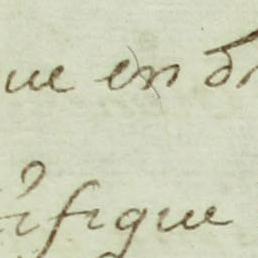 ue en
ifique